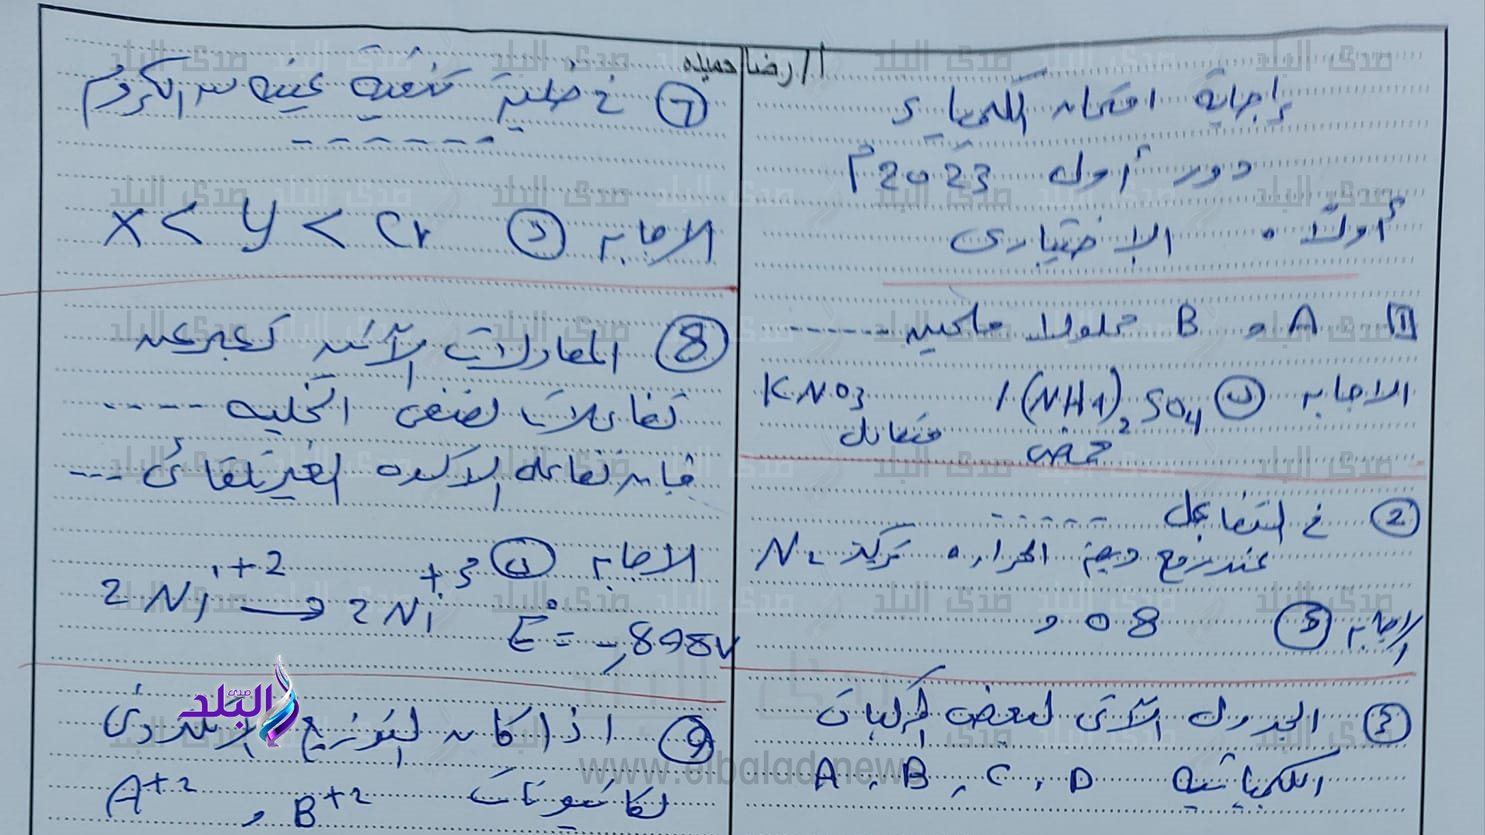 أ/ رضا حميده
إجابة امتحان الكيمياء
دور أول 2023م
أولاً: الاختيارى
1 A و B محلولا ملحين ------
الاجابه ب (NH4)2SO4 / KNO3
حمضى متعادل
2 فى التفاعل -----
عند رفع درجة الحراره تركيز N2
الاجابه 0,08
3 الجدول الآتى لبعض المركبات
الكيميائيه A, B, C, D
7 فى خلية جلفانية من الكروم
------
الاجابه د X < Y < Cr
8 المعادلات الآتيه تعبر عن
تفاعلات نصفى الخليه -----
فإن تفاعل الاكسده الغير تلقائى ---
الاجابه
2Ni+2 → 2Ni+3
E° = -,898V
9 اذا كان التوزيع الالكترونى
لكاتيونات A+2 , B+2
صدى البلد
www.elbalad.news